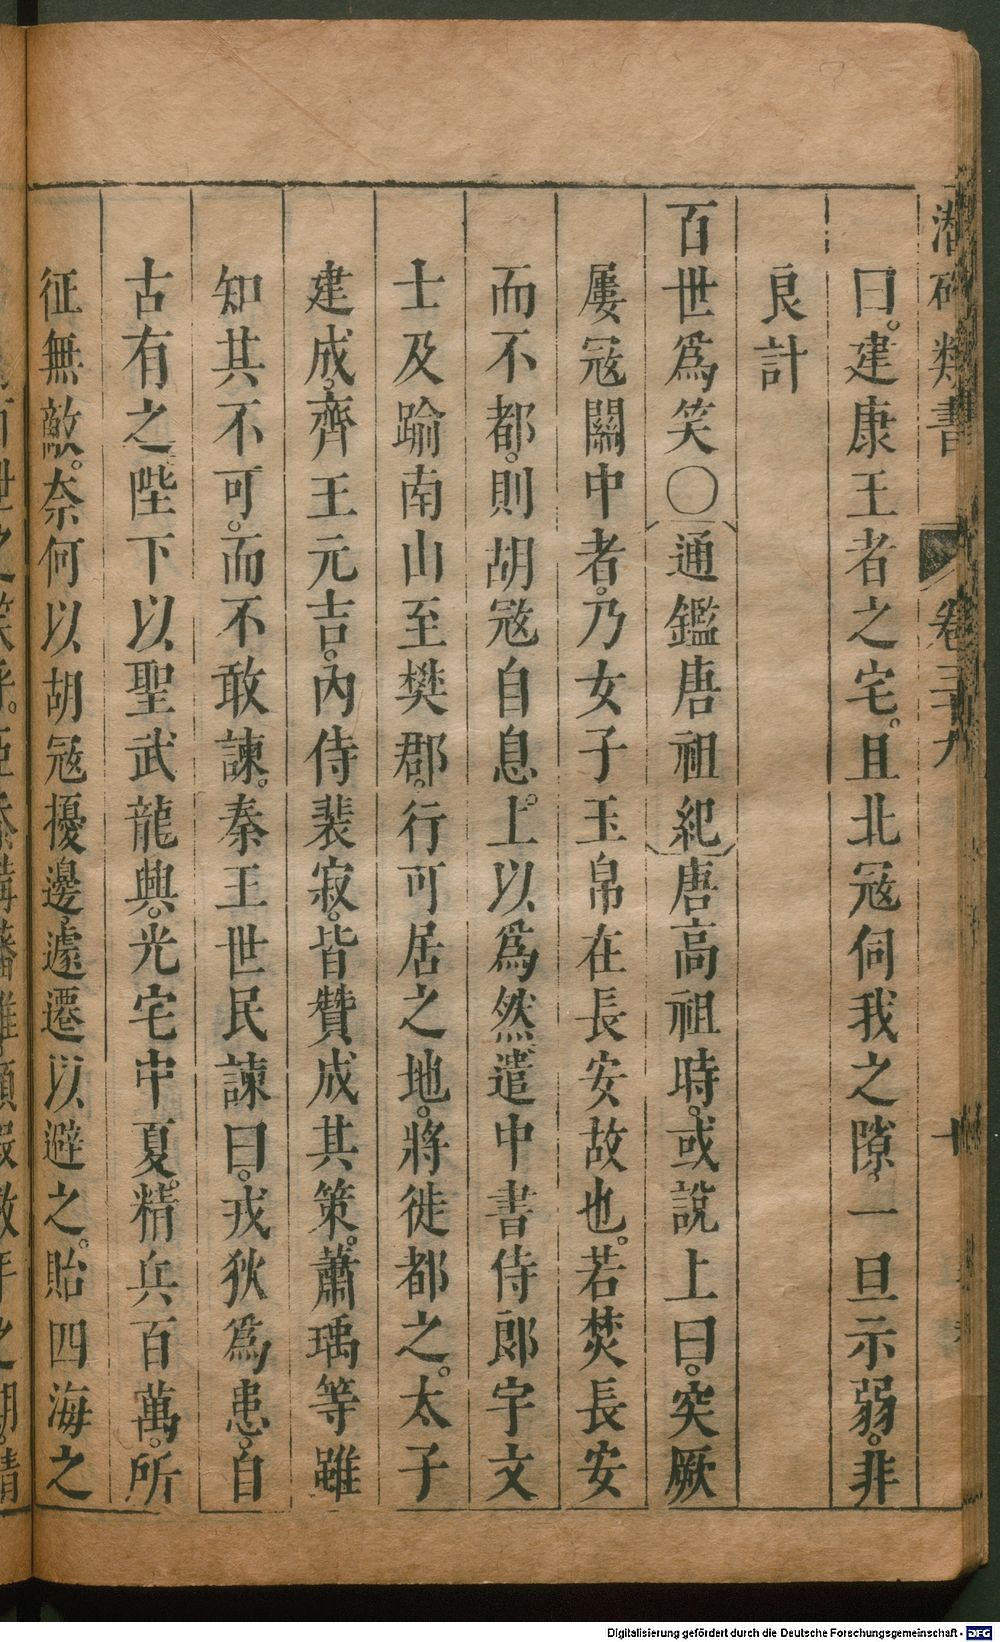 潛確類書 卷三十九 十
曰。建康王者之宅。且北冦伺我之隙、一旦示弱。非
良計
百世爲笑〇〔通鑑唐祖紀〕唐高祖時。或說上曰。突厥
屢冦關中者。乃女子玉帛在長安故也。若焚長安
而不都。則胡冦自息。上以爲然。遣中書侍郎宇文
士及踰南山至樊鄧。行可居之地。將徙都之。太子
建成。齊王元吉。內侍裴寂。皆贊成其策。蕭瑀等雖
知其不可。而不敢諫。秦王世民諫曰。戎狄爲患。自
古有之。陛下以聖武龍興。光宅中夏。精兵百萬。所
征無敵。奈何以胡冦擾邊。遽遷以避之。貽四海之
Digitalisierung gefördert durch die Deutsche Forschungsgemeinschaft - DFG